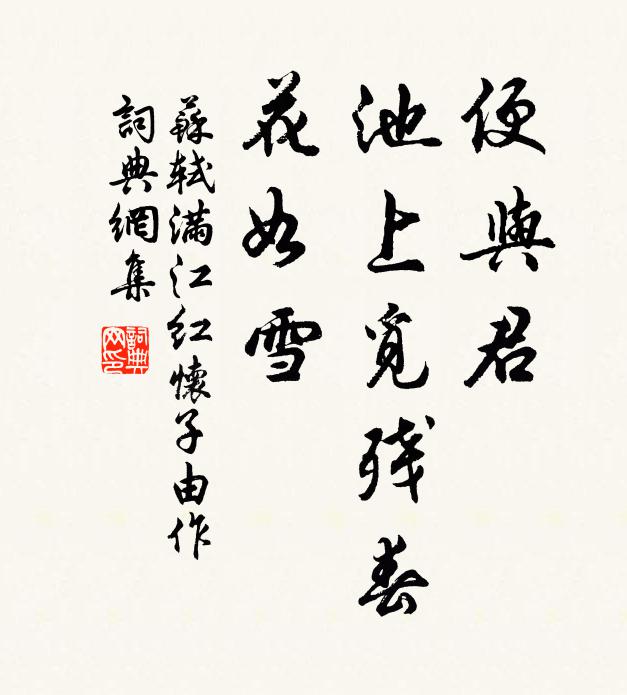 便與君
池上覓残春
花如雪
蘇軾滿江紅懷子由作
詞典網集
詞典网印